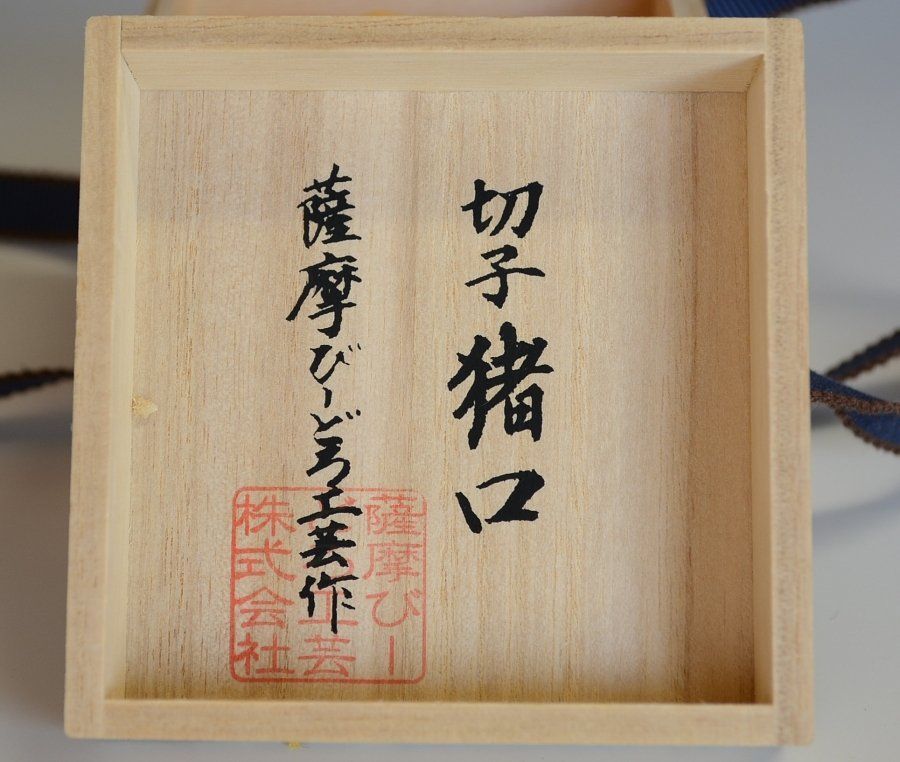 切子猪口
薩摩びーどろ工芸作
薩摩びー
どろ工芸
株式会社